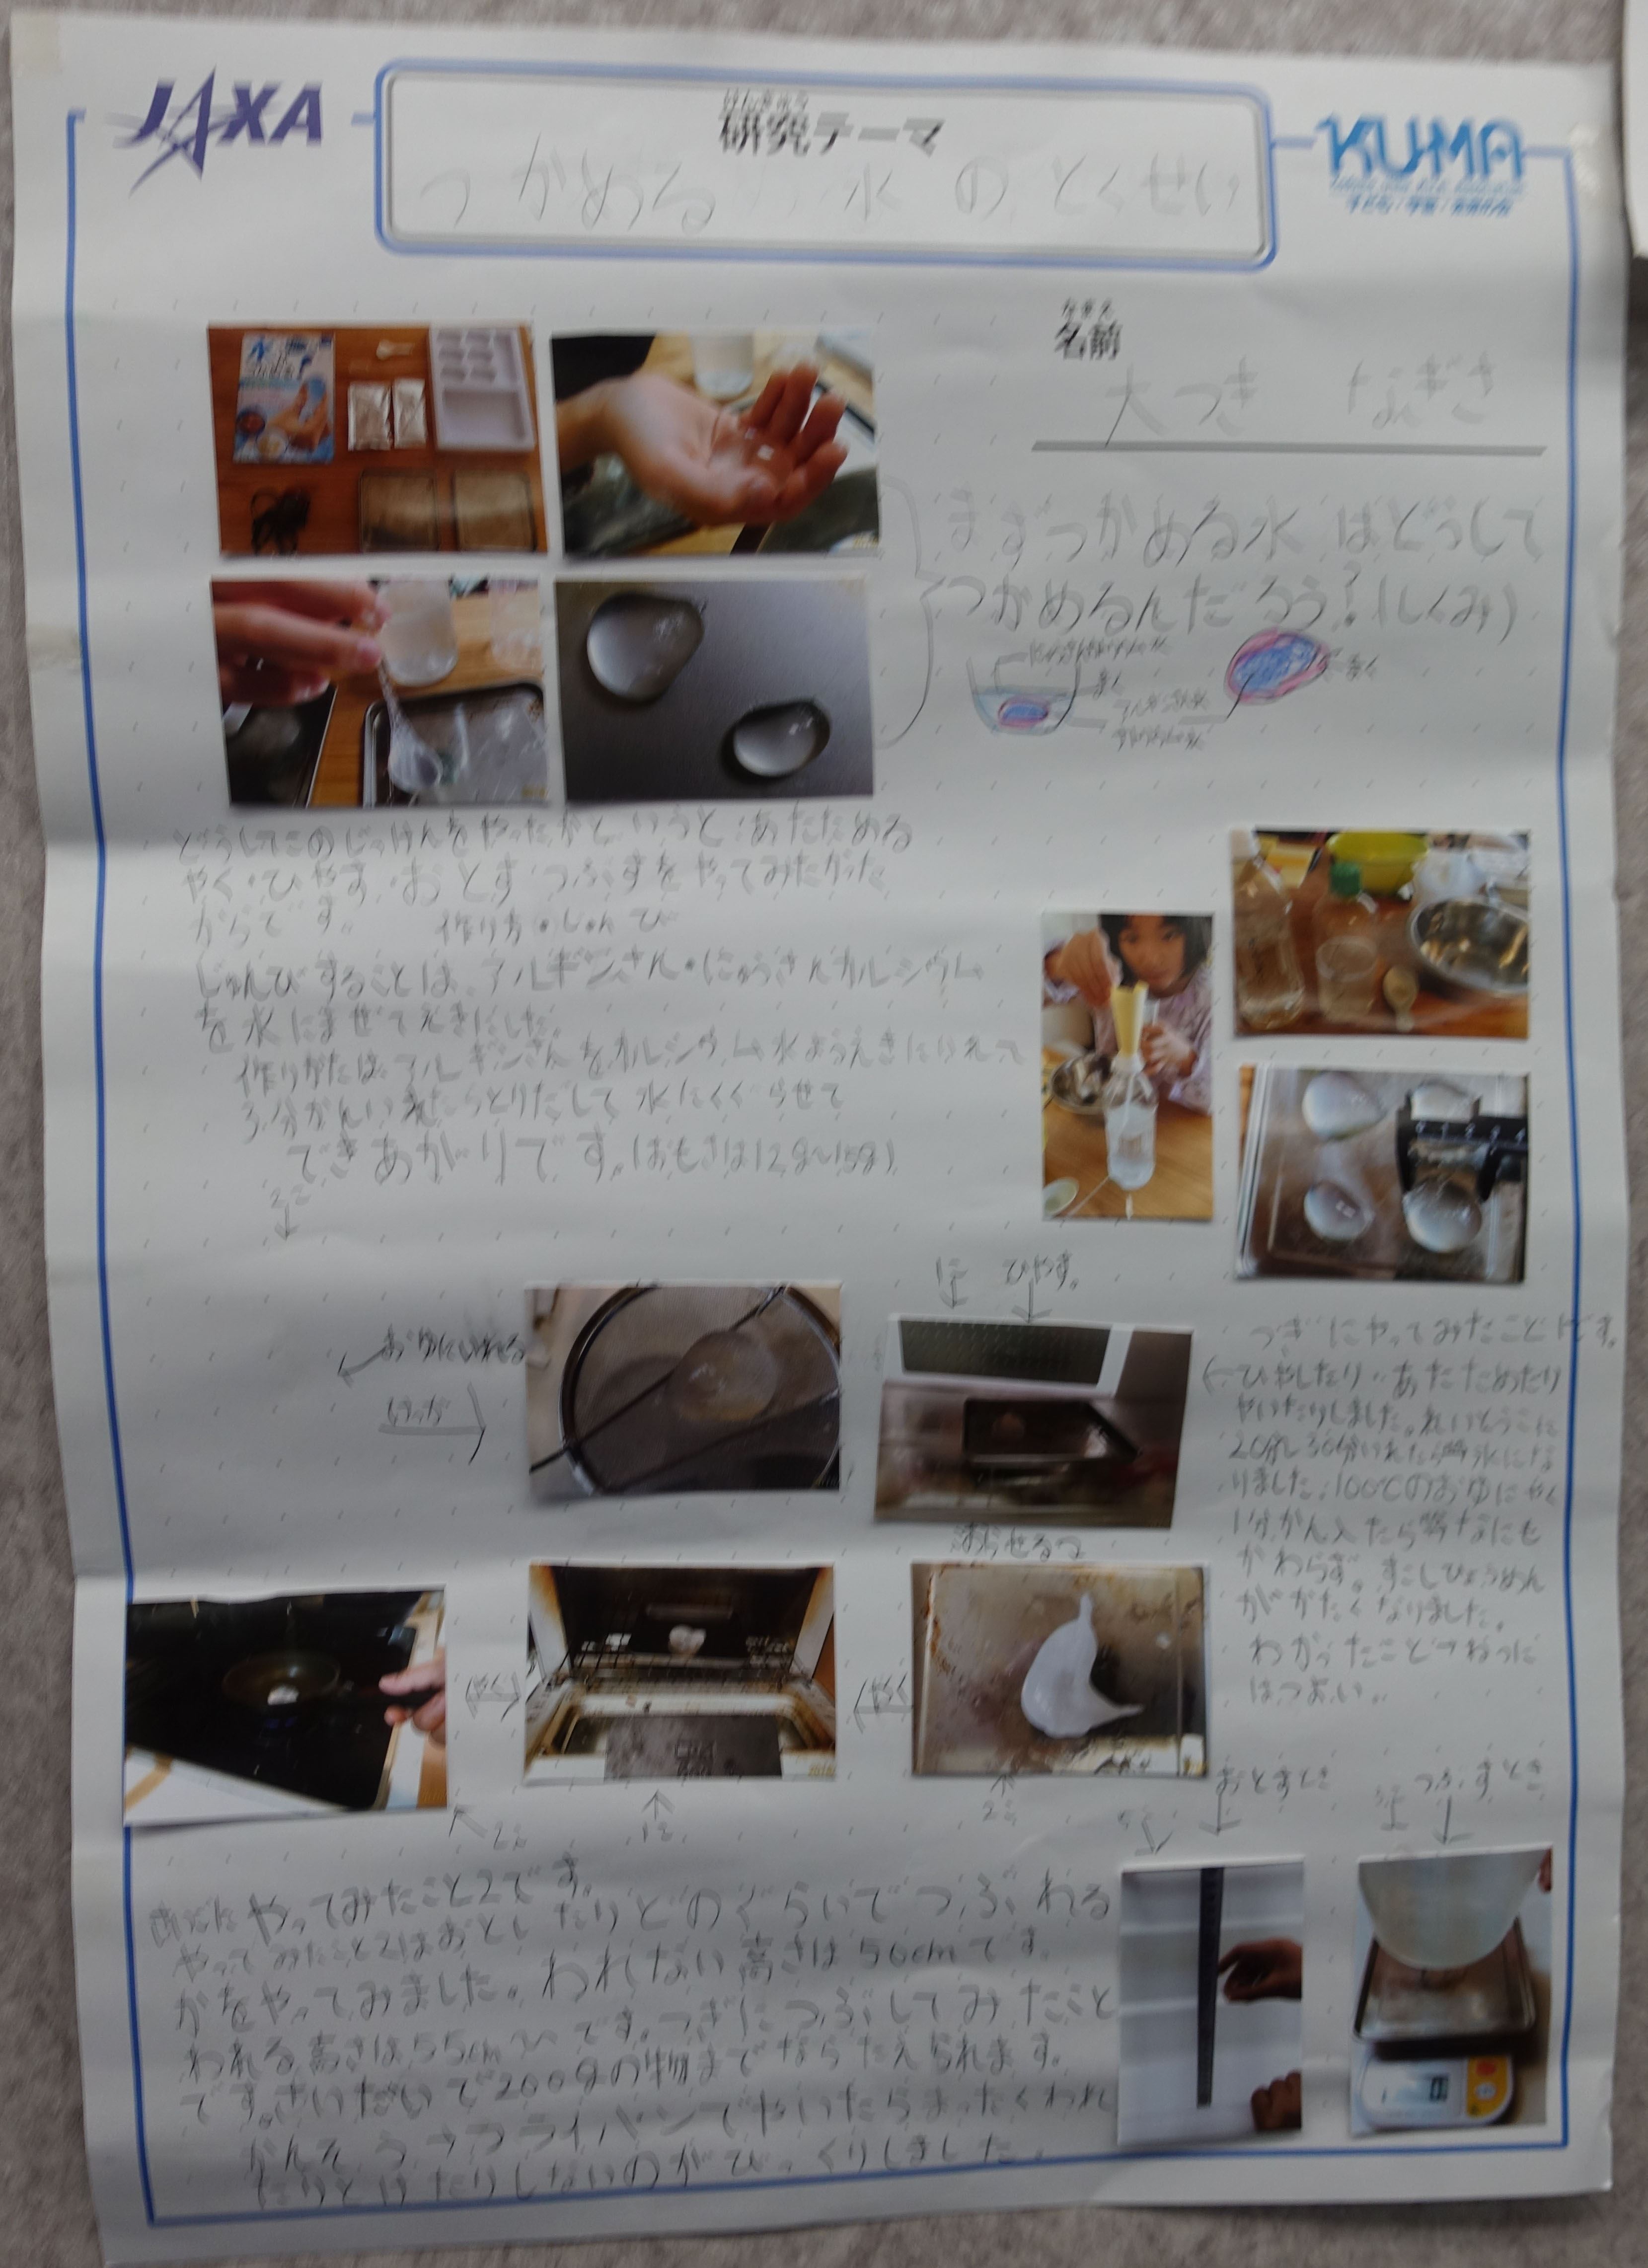 JAXA
けんきゅう
研究テーマ
KU-MA
子ども・宇宙・未来の会
つかめる水のとくせい
なまえ
名前
大つき なぎさ
まずつかめる水はどうして
つかめるんだろう?(しくみ)
まく
まく
どうしてこのじっけんをやったかというと、あたためる
やく・ひやす・おとす・つぶすをやってみたかった
からです。
作り方・じゅんび
じゅんびすることは、アルギンさん・にゅうさんカルシウム
を水にまぜてえきにした。
作りかたはアルギンさんをカルシウム水ようえきにいれて
3分かんいれたらとりだして水にくぐらせて
できあがりです。(おもさは12g〜15g)
2こ
1こ ひやす。
おゆにいれる
けっか
つぎにやってみたこと1です。
ひやしたり・あたためたり
やいたりしました。れいとうこに
20分〜30分いれたら氷にな
りました。100℃のおゆにやく
1分かん入たらなにも
かわらず。すこしひょうめん
がかたくなりました。
わかったこと→ねつに
はつよい。
こおらせる
やく
やく
2こ
1こ
2こ
おとすとき
つぶすとき
やってみたこと2です。
やってみたこと2はおとしたりどのぐらいでつぶれる
かをやってみました。われない高さは50cmです。
われる高さは55cm〜です。つぎにつぶしてみたこと
です。さいだいで200gの物までならたえられます。
かんそう→フライパンでやいたらまったくわれ
たりとけたりしないのがびっくりしました。